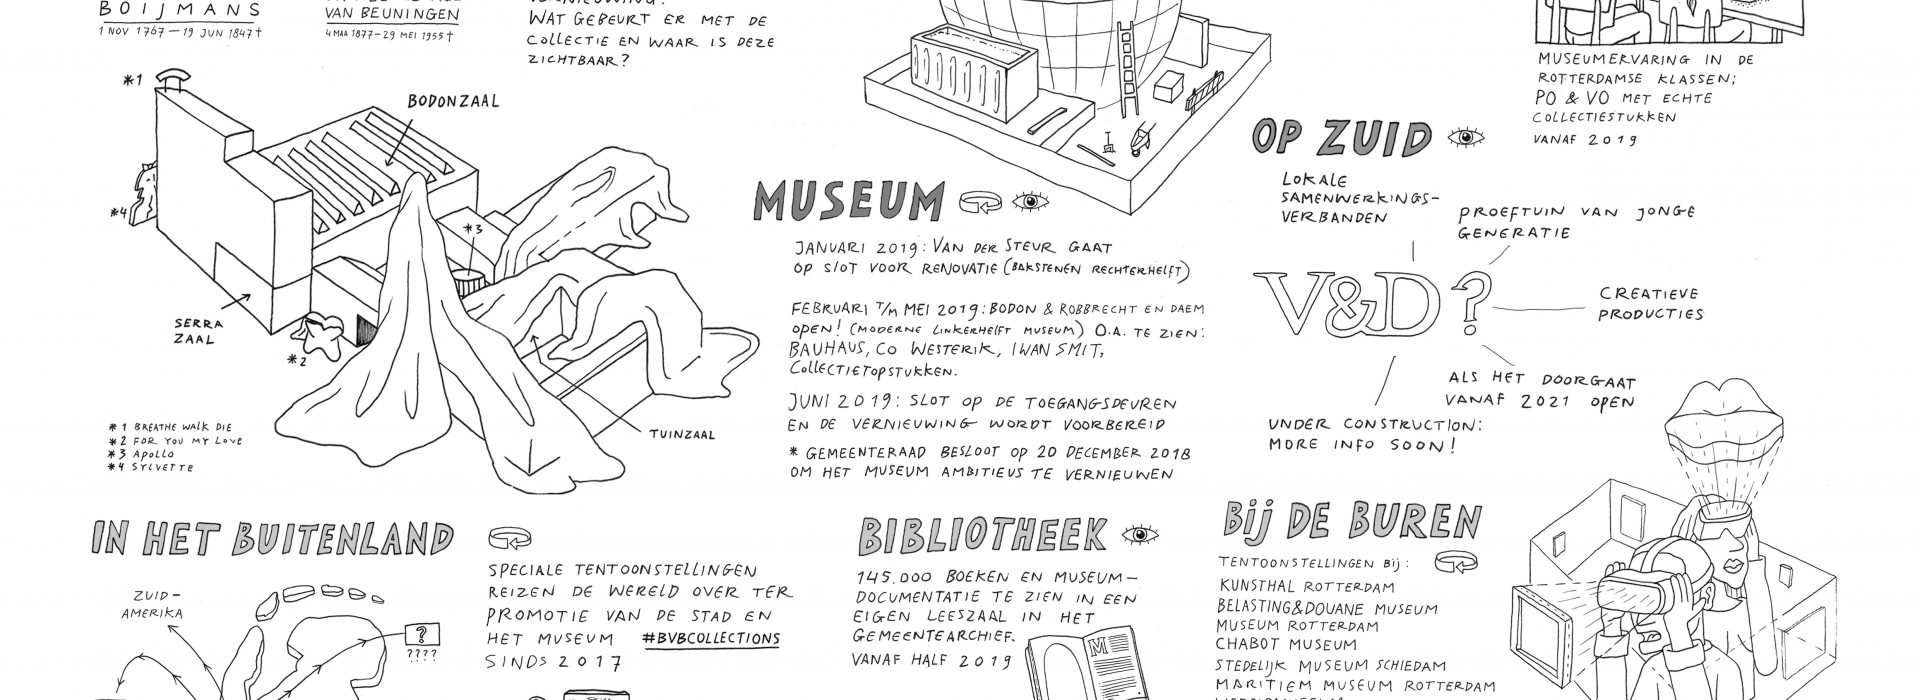 BOIJMANS
1 NOV 1767 — 19 JUN 1847†
VAN BEUNINGEN
4 MAA 1877 – 29 MEI 1955†
WAT GEBEURT ER MET DE
COLLECTIE EN WAAR IS DEZE
ZICHTBAAR?
*1
BODONZAAL
*4
*3
SERRA
ZAAL
*2
TUINZAAL
*1 BREATHE WALK DIE
*2 FOR YOU MY LOVE
*3 APOLLO
*4 SYLVETTE
MUSEUM
JANUARI 2019: VAN DER STEUR GAAT
OP SLOT VOOR RENOVATIE (BAKSTENEN RECHTERHELFT)
FEBRUARI T/M MEI 2019: BODON & ROBBRECHT EN DAEM
OPEN! (MODERNE LINKERHELFT MUSEUM) O.A. TE ZIEN:
BAUHAUS, CO WESTERIK, IWAN SMIT,
COLLECTIETOPSTUKKEN.
JUNI 2019: SLOT OP DE TOEGANGSDEUREN
EN DE VERNIEUWING WORDT VOORBEREID
* GEMEENTERAAD BESLOOT OP 20 DECEMBER 2018
OM HET MUSEUM AMBITIEUS TE VERNIEUWEN
MUSEUMERVARING IN DE
ROTTERDAMSE KLASSEN;
PO & VO MET ECHTE
COLLECTIESTUKKEN
VANAF 2019
OP ZUID
LOKALE
SAMENWERKINGS-
VERBANDEN
PROEFTUIN VAN JONGE
GENERATIE
V&D?
CREATIEVE
PRODUCTIES
ALS HET DOORGAAT
VANAF 2021 OPEN
UNDER CONSTRUCTION:
MORE INFO SOON!
IN HET BUITENLAND
ZUID-
AMERIKA
?
????
SPECIALE TENTOONSTELLINGEN
REIZEN DE WERELD OVER TER
PROMOTIE VAN DE STAD EN
HET MUSEUM #BVBCOLLECTIONS
SINDS 2017
BIBLIOTHEEK
145.000 BOEKEN EN MUSEUM-
DOCUMENTATIE TE ZIEN IN EEN
EIGEN LEESZAAL IN HET
GEMEENTEARCHIEF.
VANAF HALF 2019
M
Bij DE BUREN
TENTOONSTELLINGEN Bij:
KUNSTHAL ROTTERDAM
BELASTING&DOUANE MUSEUM
MUSEUM ROTTERDAM
CHABOT MUSEUM
STEDELIJK MUSEUM SCHIEDAM
MARITIEM MUSEUM ROTTERDAM